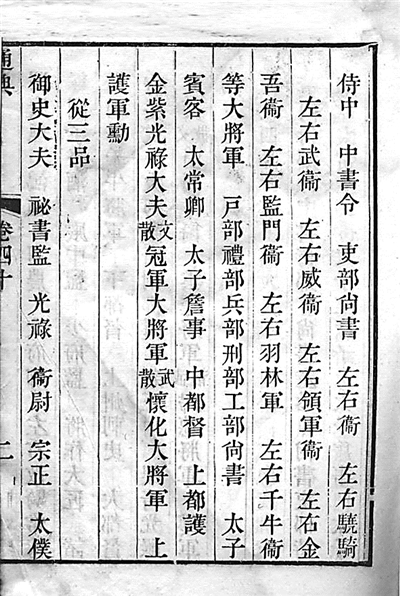 侍中　中書令　吏部尚書　左右衞　左右驍騎
左右武衞　左右威衞　左右領軍衞　左右金
吾衞　左右監門衞　左右羽林軍　左右千牛衞
等大將軍　戸部禮部兵部刑部工部尚書　太子
賓客　太常卿　太子詹事　中都督　上都護
金紫光祿大夫文散　冠軍大將軍武散　懷化大將軍　上
護軍勳
從三品
御史大夫　祕書監　光祿　衞尉　宗正　太僕
通典　卷四十　二